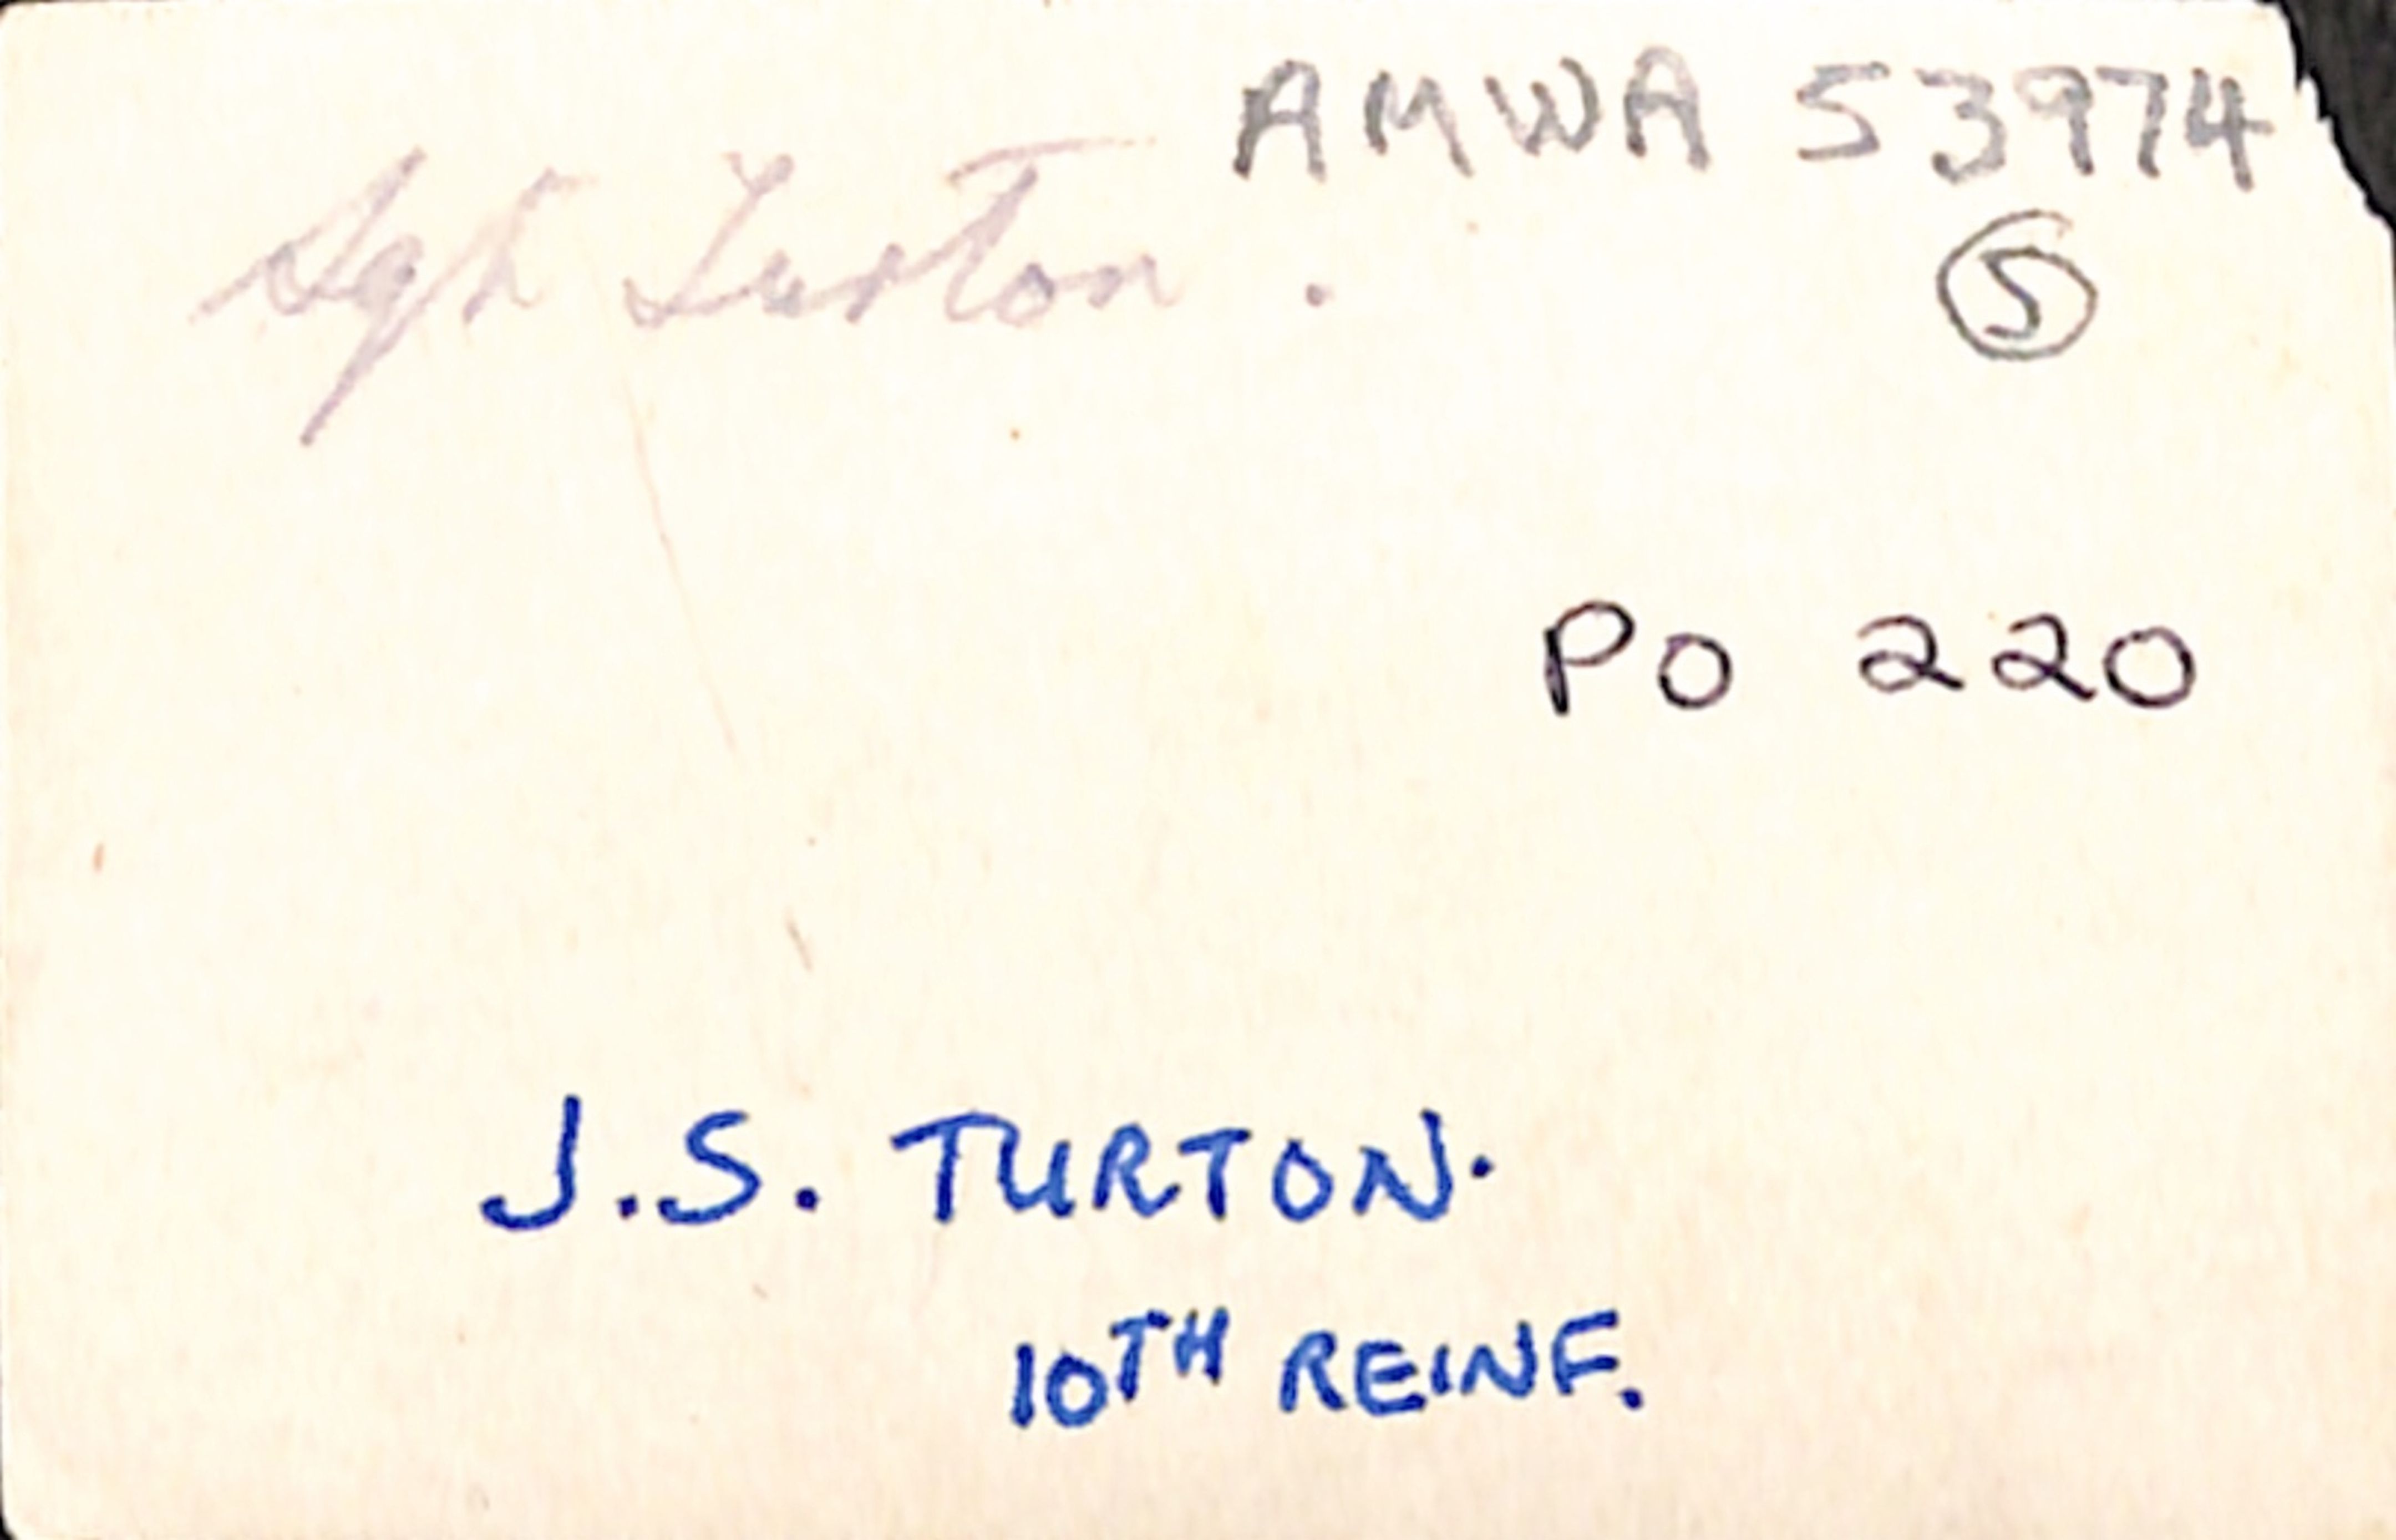 AMWA 53974
Sgt Turton.
5
PO 220
J.S. TURTON.
10TH REINF.